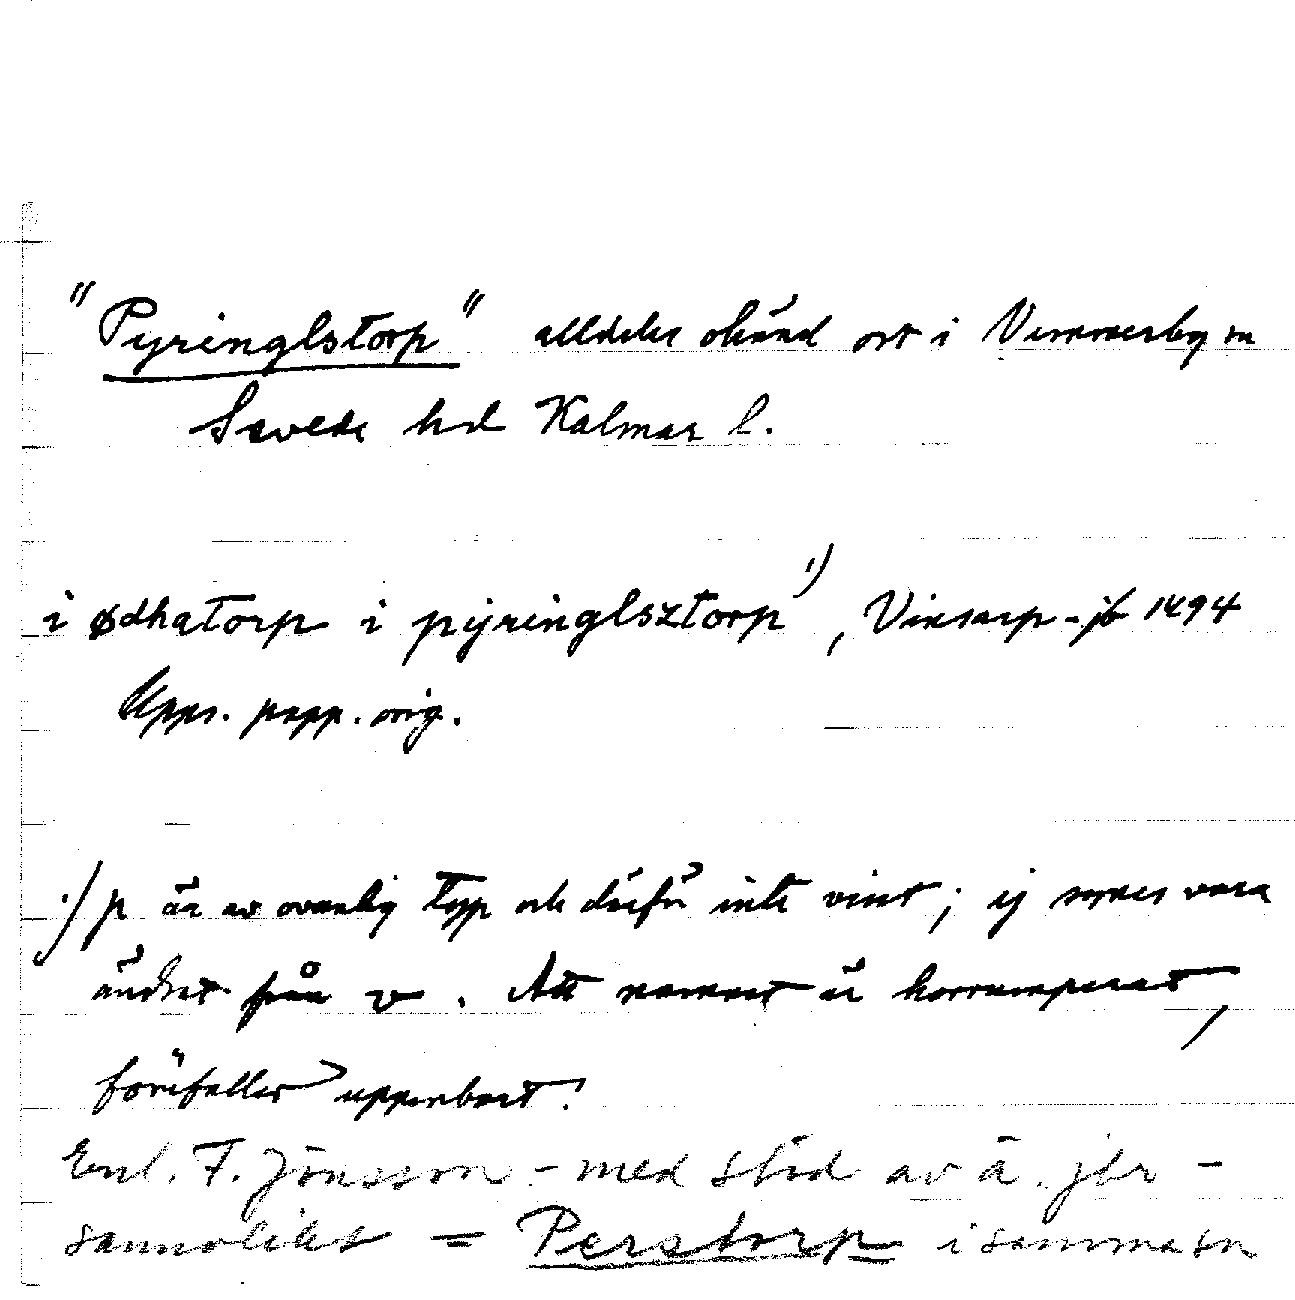 "Pyringlstorp" alldeles okänd ort i Vimmerby sn
Sevede hd Kalmar l.
i ødhatorp i pyringlsztorp 1), Vinsarp-jb 1494
Upps. papp. orig.
1) p är av ovanlig typ och därför inte visst; ej synes vara
ändrat från v. Att namnet är korrumperat,
förefaller uppenbart!
Enl. F. Jönsson - med stöd av ä. jbr -
sannolikt = Perstorp i samma sn